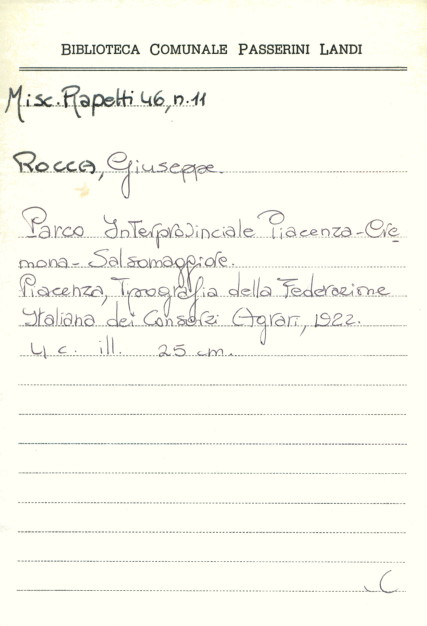 BIBLIOTECA COMUNALE PASSERINI LANDI
Misc. Rapetti 46, n. 11
ROCCA, Giuseppe.
Parco Interprovinciale Piacenza-Cre
mona-Salsomaggiore.
Piacenza, Tipografia della Federazione
Italiana dei Consorzi Agrari, 1922.
4 c. ill. 25 cm.